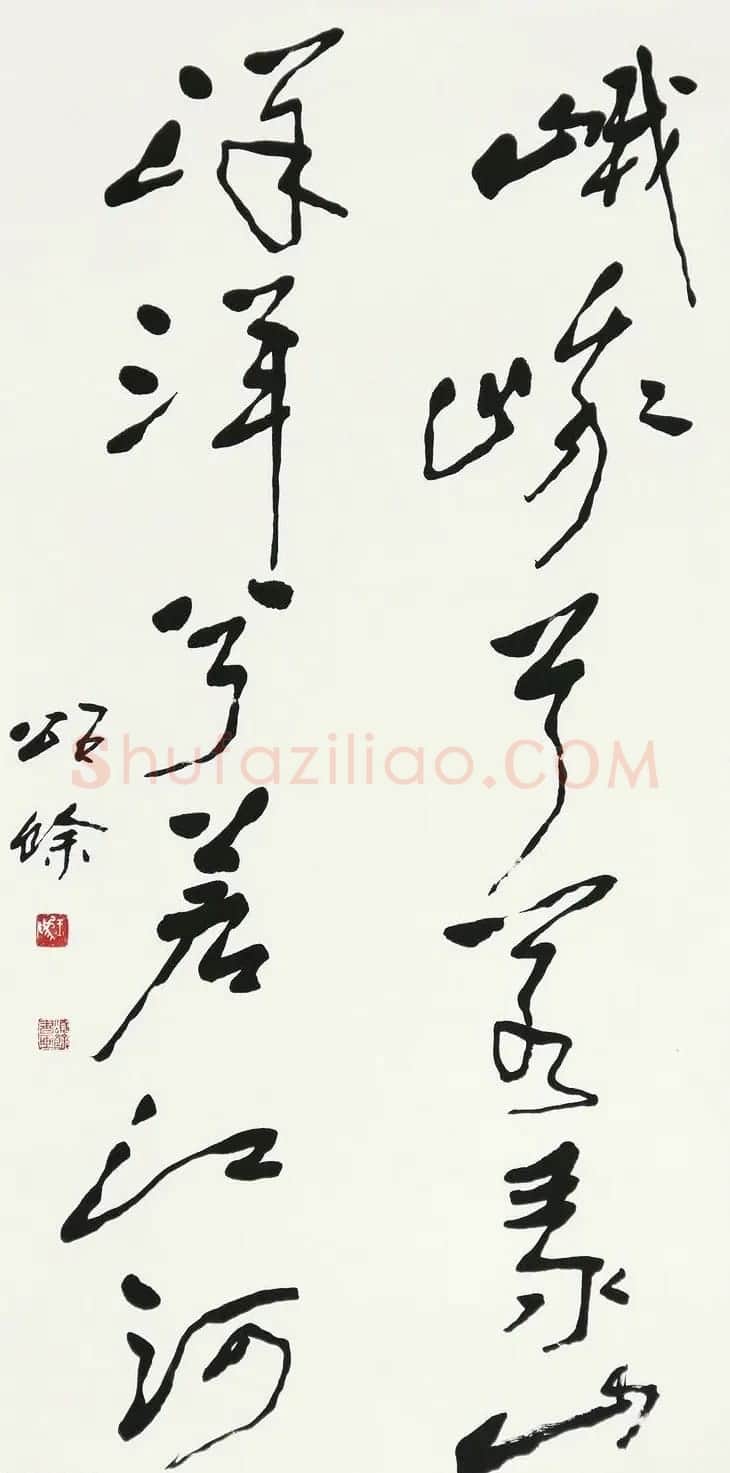 峨峨兮若泰山
洋洋兮若江河
颂馀
Shufaziliao.COM